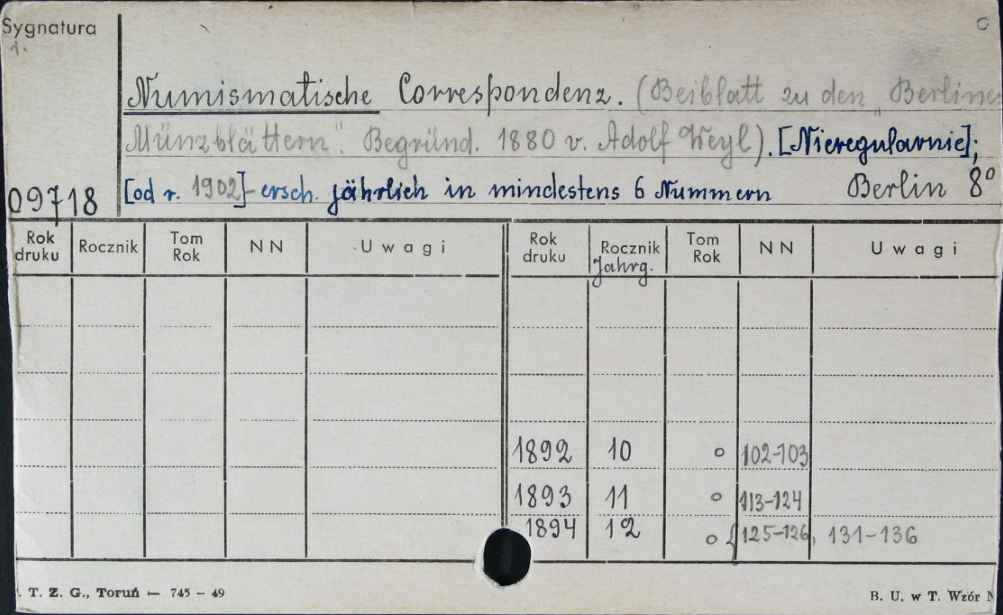 Sygnatura
Numismatische Correspondenz. (Beiblatt zu den "Berliner
Münzblättern". Begründ. 1880 v. Adolf Weyl). [Nieregularnie];
09718 [od r. 1902]- ersch. jährlich in mindestens 6 Nummern Berlin 8°
Rok druku Rocznik Tom Rok NN Uwagi Rok druku Rocznik Jahrg. Tom Rok NN Uwagi
1892 10 o 102-103
1893 11 o 113-124
1894 12 o {125-126, 131-136
T. Z. G., Toruń — 745 – 49 B. U. w T. Wzór